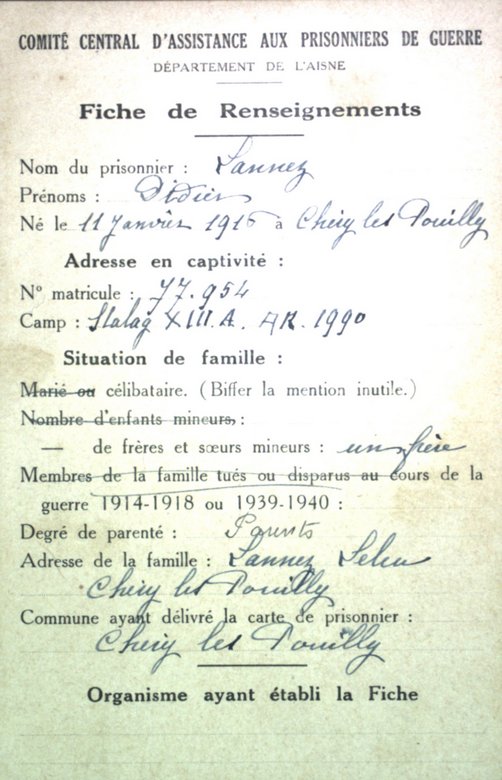 COMITÉ CENTRAL D'ASSISTANCE AUX PRISONNIERS DE GUERRE
DÉPARTEMENT DE L'AISNE
Fiche de Renseignements
Nom du prisonnier : Lannez
Prénoms : Didier
Né le 11 Janvier 1916 à Chéry les Pouilly
Adresse en captivité :
N° matricule : 77.954
Camp : Stalag XIII.A. AK. 1990
Situation de famille :
Marié ou célibataire. (Biffer la mention inutile.)
Nombre d'enfants mineurs, :
— de frères et sœurs mineurs : un frère
Membres de la famille tués ou disparus au cours de la
guerre 1914-1918 ou 1939-1940 :
Degré de parenté : Parents
Adresse de la famille : Lannez
Chéry les Pouilly
Commune ayant délivré la carte de prisonnier :
Chéry les Pouilly
Organisme ayant établi la Fiche